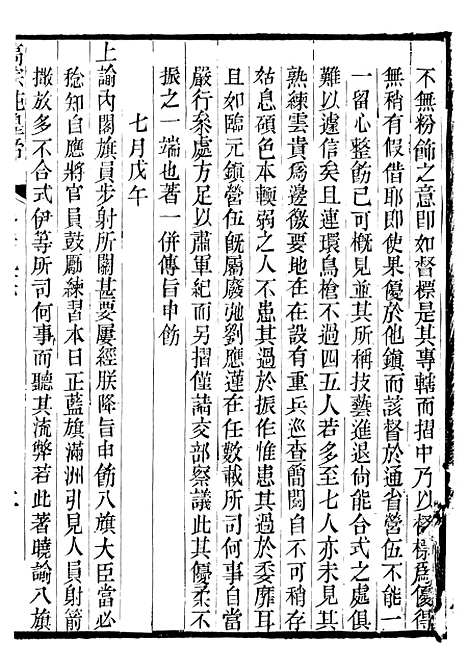 不無粉飾之意即如督標是其專轄而摺中乃以督標為優得
無稍有假借耶即使果優於他鎮而該督於通省營伍不能一
一留心整飭已可概見並其所稱技藝進退尚能合式之處俱
難以遽信矣且連環鳥槍不過四五人若多至七人亦未見其
熟練雲貴為邊徼要地在在重兵巡查簡閱自不可少若存
姑息碩色本輭弱之人不患其過於振作惟患其過於委靡耳
且如臨元鎮營伍既屬廢弛劉應蓮在任數載所司何事自當
嚴行叅處方足以肅軍紀而另摺僅請交部察議此其優柔不
振之一端也著一併傳旨申飭
七月戊午
上諭內閣旗員步射所關甚要屢經朕降旨申飭八旗大臣當必
稔知自應將官員鼓勵練習本日正藍旗滿洲引見人員射箭
撒放多不合式伊等所司何事而聽其流弊若此著曉諭八旗
高宗純皇帝